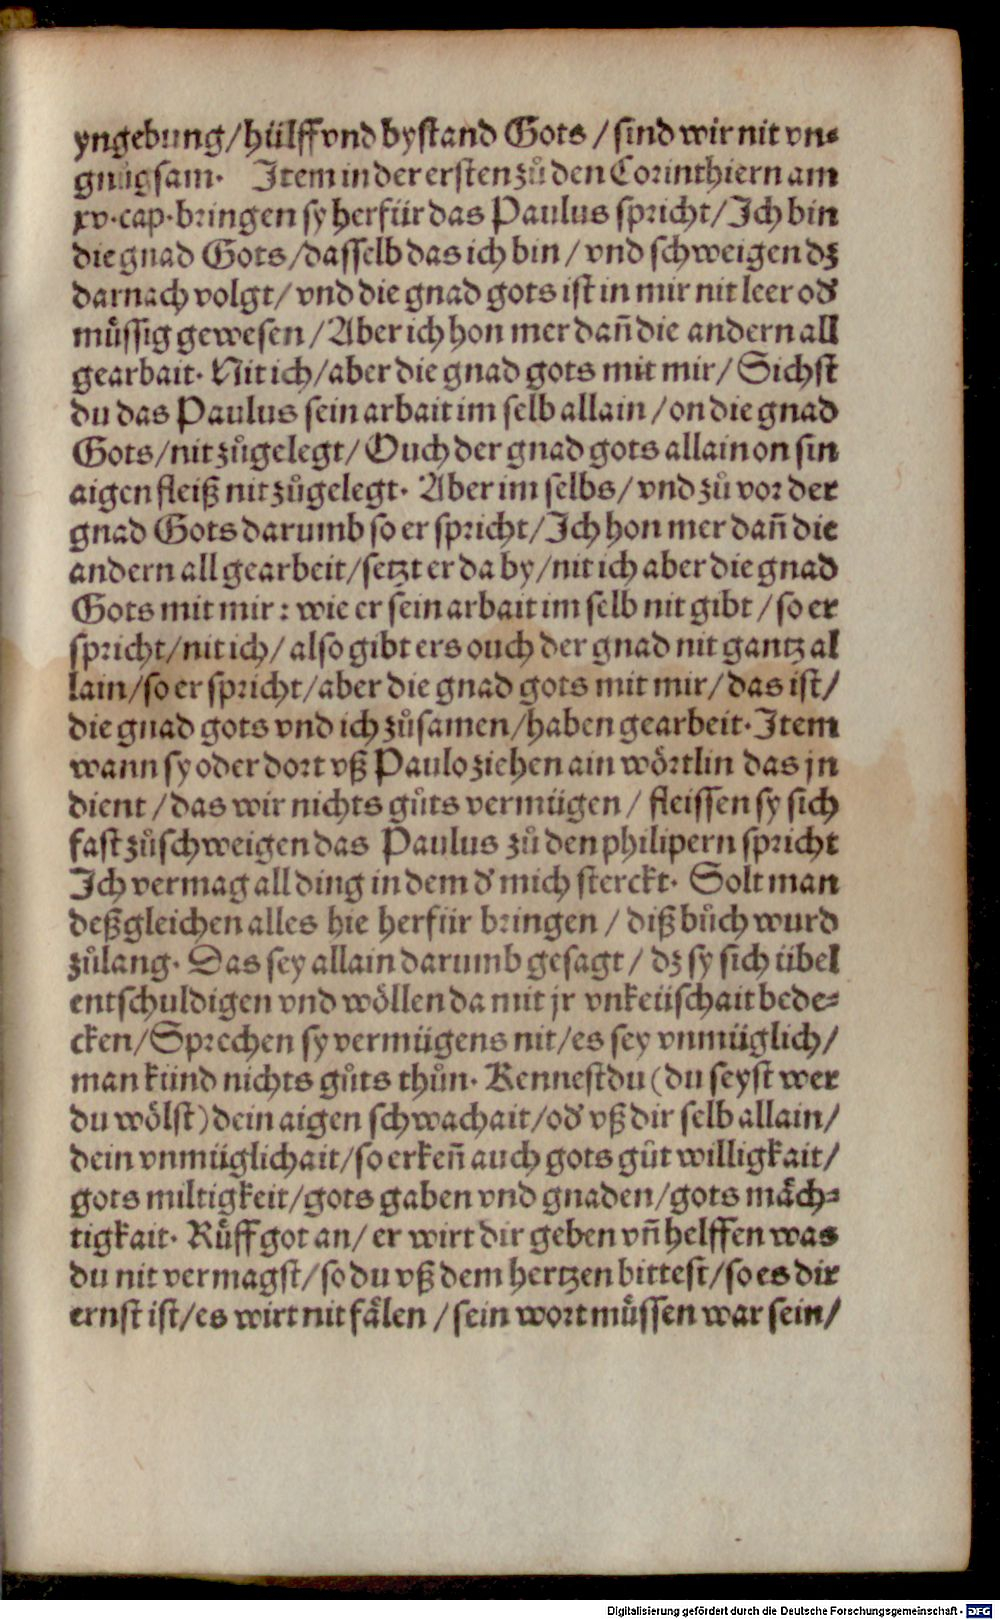 yngebung/hülff vnd bystand Gots / sind wir nit vn⸗
gnůgsam. Item in der ersten zů den Corinthiern am
xv. cap. bringen sy herfür das Paulus spricht/Ich bin
die gnad Gots/dasselb das ich bin / vnd schweigen dz
darnach volgt/ vnd die gnad gots ist in mir nit leer oď
müssig gewesen / Aber ich hon mer dañ die andern all
gearbait. Nit ich/aber die gnad gots mit mir/ Sichst
du das Paulus sein arbait im selb allain /on die gnad
Gots/nit zůgelegt/ Ouch der gnad gots allain on sin
aigen fleiß nit zůgelegt. Aber im selbs/ vnd zů vor der
gnad Gots darumb so er spricht/Ich hon mer dañ die
andern all gearbeit/setzt er da by/nit ich aber die gnad
Gots mit mir: wie er sein arbait im selb nit gibt /so er
spricht/nit ich/ also gibt ers ouch der gnad nit gantz al
lain/so er spricht/aber die gnad gots mit mir/ das ist/
die gnad gots vnd ich zůsamen/haben gearbeit. Item
wann sy oder dort vß Paulo ziehen ain wörtlin das jn
dient /das wir nichts gůts vermügen/ fleissen sy sich
fast zůschweigen das Paulus zů den philipern spricht
Ich vermag all ding in dem ď mich sterckt. Solt man
deßgleichen alles hie herfür bringen / diß bůch wurd
zůlang. Das sey allain darumb gesagt/ dz sy sich übel
entschuldigen vnd wöllen da mit jr vnkeüschait bede⸗
cken/Sprechen sy vermügens nit/es sey vnmüglich/
man künd nichts gůts thůn. Kennest du (du seyst wer
du wölst) dein aigen schwachait/oď vß dir selb allain/
dein vnmüglichait/so erkeñ auch gots gůt willigkait/
gots miltigkeit/gots gaben vnd gnaden/gots mäch⸗
tigkait. Rüff got an/ er wirt dir geben vñ helffen was
du nit vermagst/so du vß dem hertzen bittest/so es dir
ernst ist/es wirt nit fälen /sein wort müssen war sein/
Digitalisierung gefördert durch die Deutsche Forschungsgemeinschaft - DFG